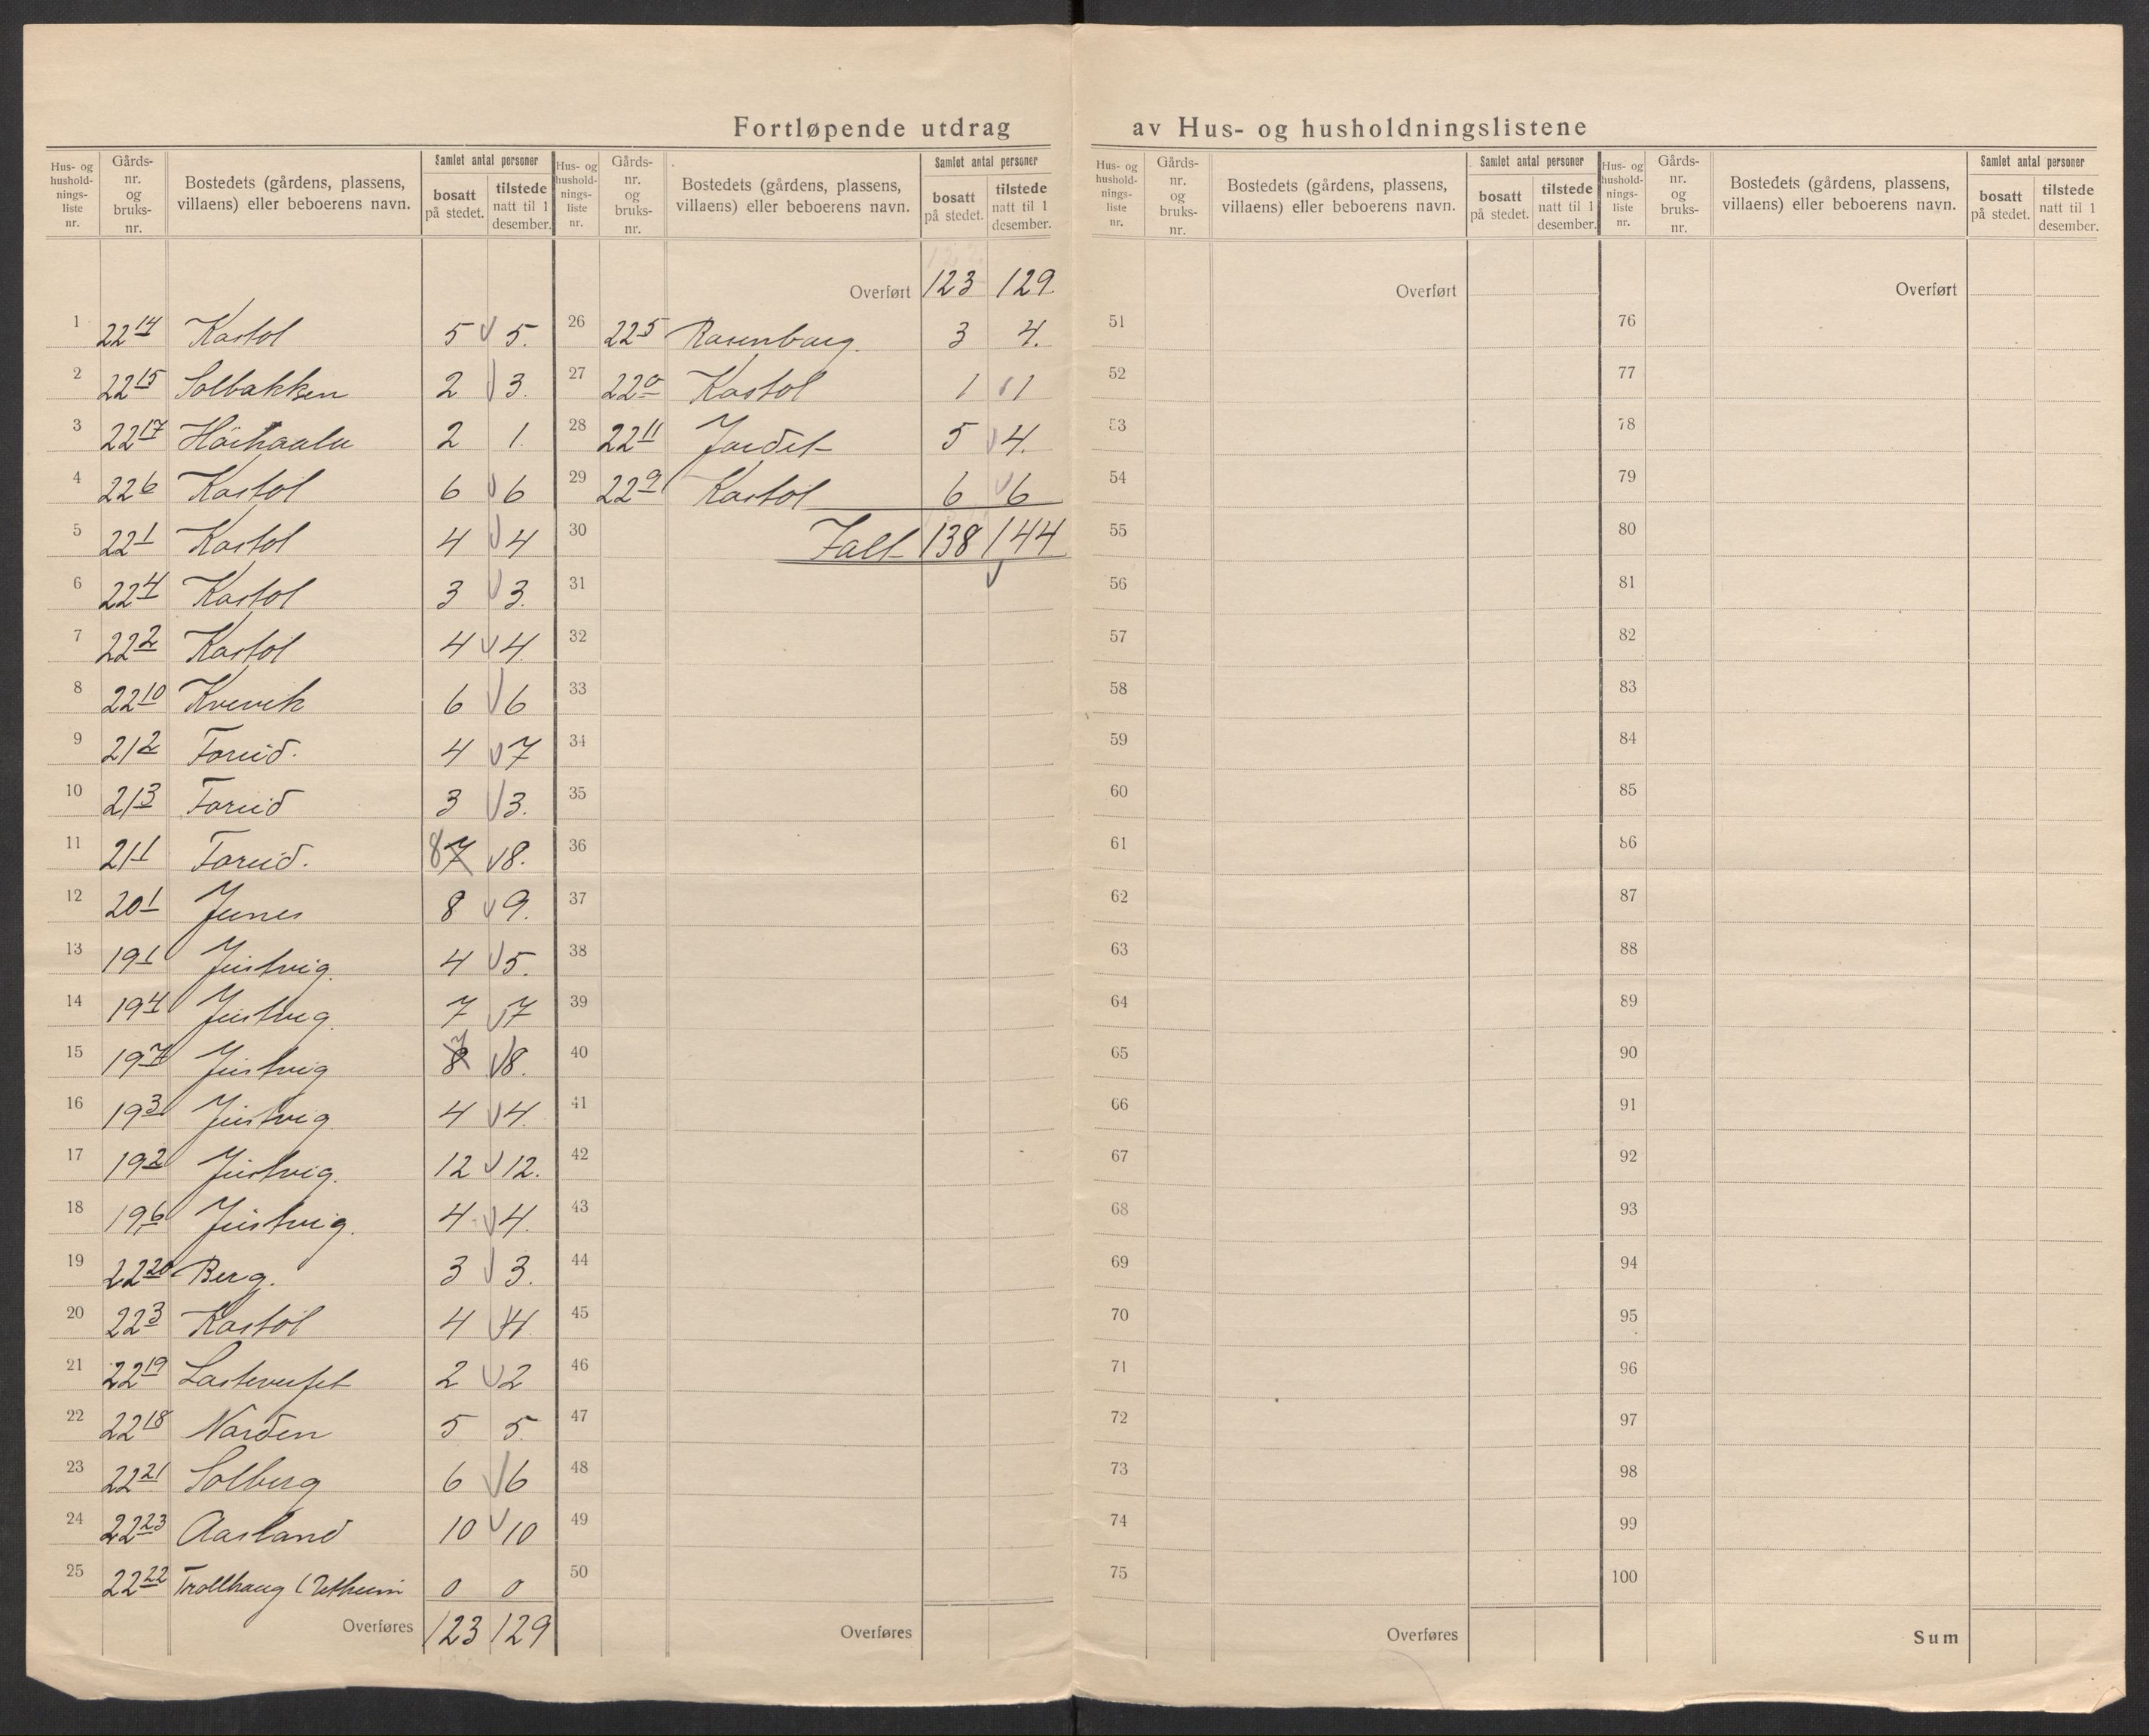 Fortløpende utdrag av Hus- og husholdningslistene
Hus- og hushold-nings-liste nr. Gårds-nr. og bruks-nr. Bostedets (gårdens, plassens, villaens) eller beboerens navn. Samlet antal personer bosatt på stedet. tilstede natt til 1 desember.
1 22 14 Kastøl 5 5.
2 22 15 Solbakken 2 3.
3 22 17 2 1.
4 22 6 Kastøl 6 6
5 22 1 Kastøl 4 4
6 22 4 Kastøl 3 3.
7 22 2 Kastøl 4 4.
8 22 10 Krevik 6 6
9 21 2 4 7
10 21 3 3 3.
11 21 1 8 7 8.
12 20 1 8 9.
13 19 1 Justvig. 4 5.
14 19 4 Justvig. 7 7
15 19 7 Justvig 8 7 8.
16 19 3 Justvig 4 4.
17 19 2 Justvig. 12 12.
18 19 6 Justvig. 4 4.
19 22 20 Berg. 3 3.
20 22 3 Kastøl 4 4.
21 22 19 2 2
22 22 18 Norden 5 5.
23 22 21 Solberg 6 6
24 22 23 Aasland 10 10
25 22 22 Trollhaug 0 0
Overføres 123 129
Hus- og hushold-nings-liste nr. Gårds-nr. og bruks-nr. Bostedets (gårdens, plassens, villaens) eller beboerens navn. Samlet antal personer bosatt på stedet. tilstede natt til 1 desember.
Overført 123 129.
26 22 5 Rosenborg. 3 4.
27 Kastøl 1 1
28 22 11 Jordet 5 4.
29 22 9 Kastøl 6 6
30 Ialt 138 144
31
32
33
34
35
36
37
38
39
40
41
42
43
44
45
46
47
48
49
50
Overføres
Hus- og hushold-nings-liste nr. Gårds-nr. og bruks-nr. Bostedets (gårdens, plassens, villaens) eller beboerens navn. Samlet antal personer bosatt på stedet. tilstede natt til 1 desember.
Overført
51
52
53
54
55
56
57
58
59
60
61
62
63
64
65
66
67
68
69
70
71
72
73
74
75
Overføres
Hus- og hushold-nings-liste nr. Gårds-nr. og bruks-nr. Bostedets (gårdens, plassens, villaens) eller beboerens navn. Samlet antal personer bosatt på stedet. tilstede natt til 1 desember.
Overført
76
77
78
79
80
81
82
83
84
85
86
87
88
89
90
91
92
93
94
95
96
97
98
99
100
Sum